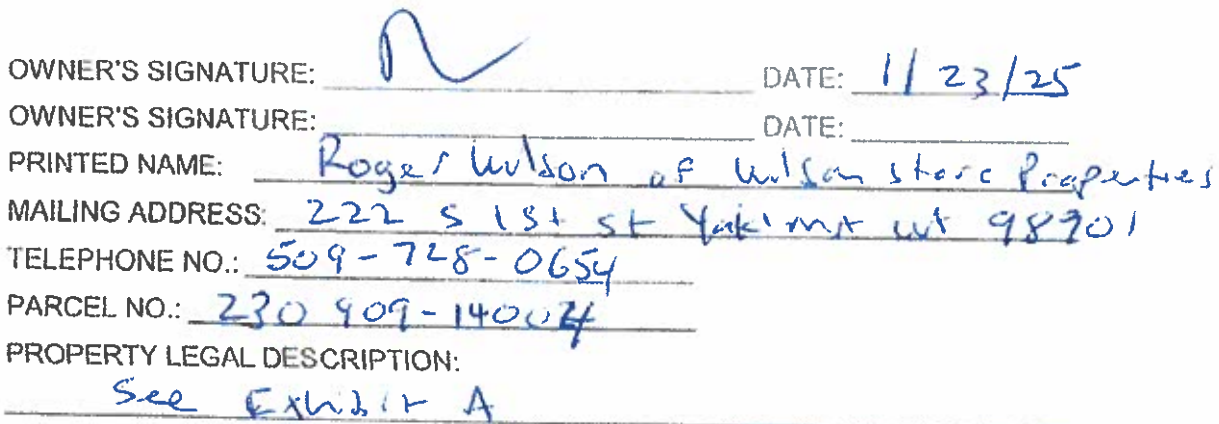 OWNER'S SIGNATURE: DATE: 1/23/25
OWNER'S SIGNATURE: DATE:
PRINTED NAME: Roger Wilson of Wilson Properties
MAILING ADDRESS: 222 S 1st st Yakima WA 98901
TELEPHONE NO.: 509-728-0654
PARCEL NO.: 230909-14004
PROPERTY LEGAL DESCRIPTION:
See Exhibit A